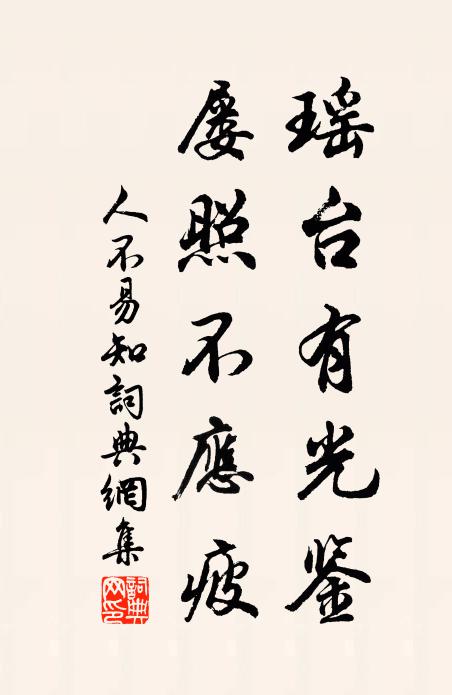 瑶台有光鉴
屡照不應疲
人不易知詞典網集
詞典网印